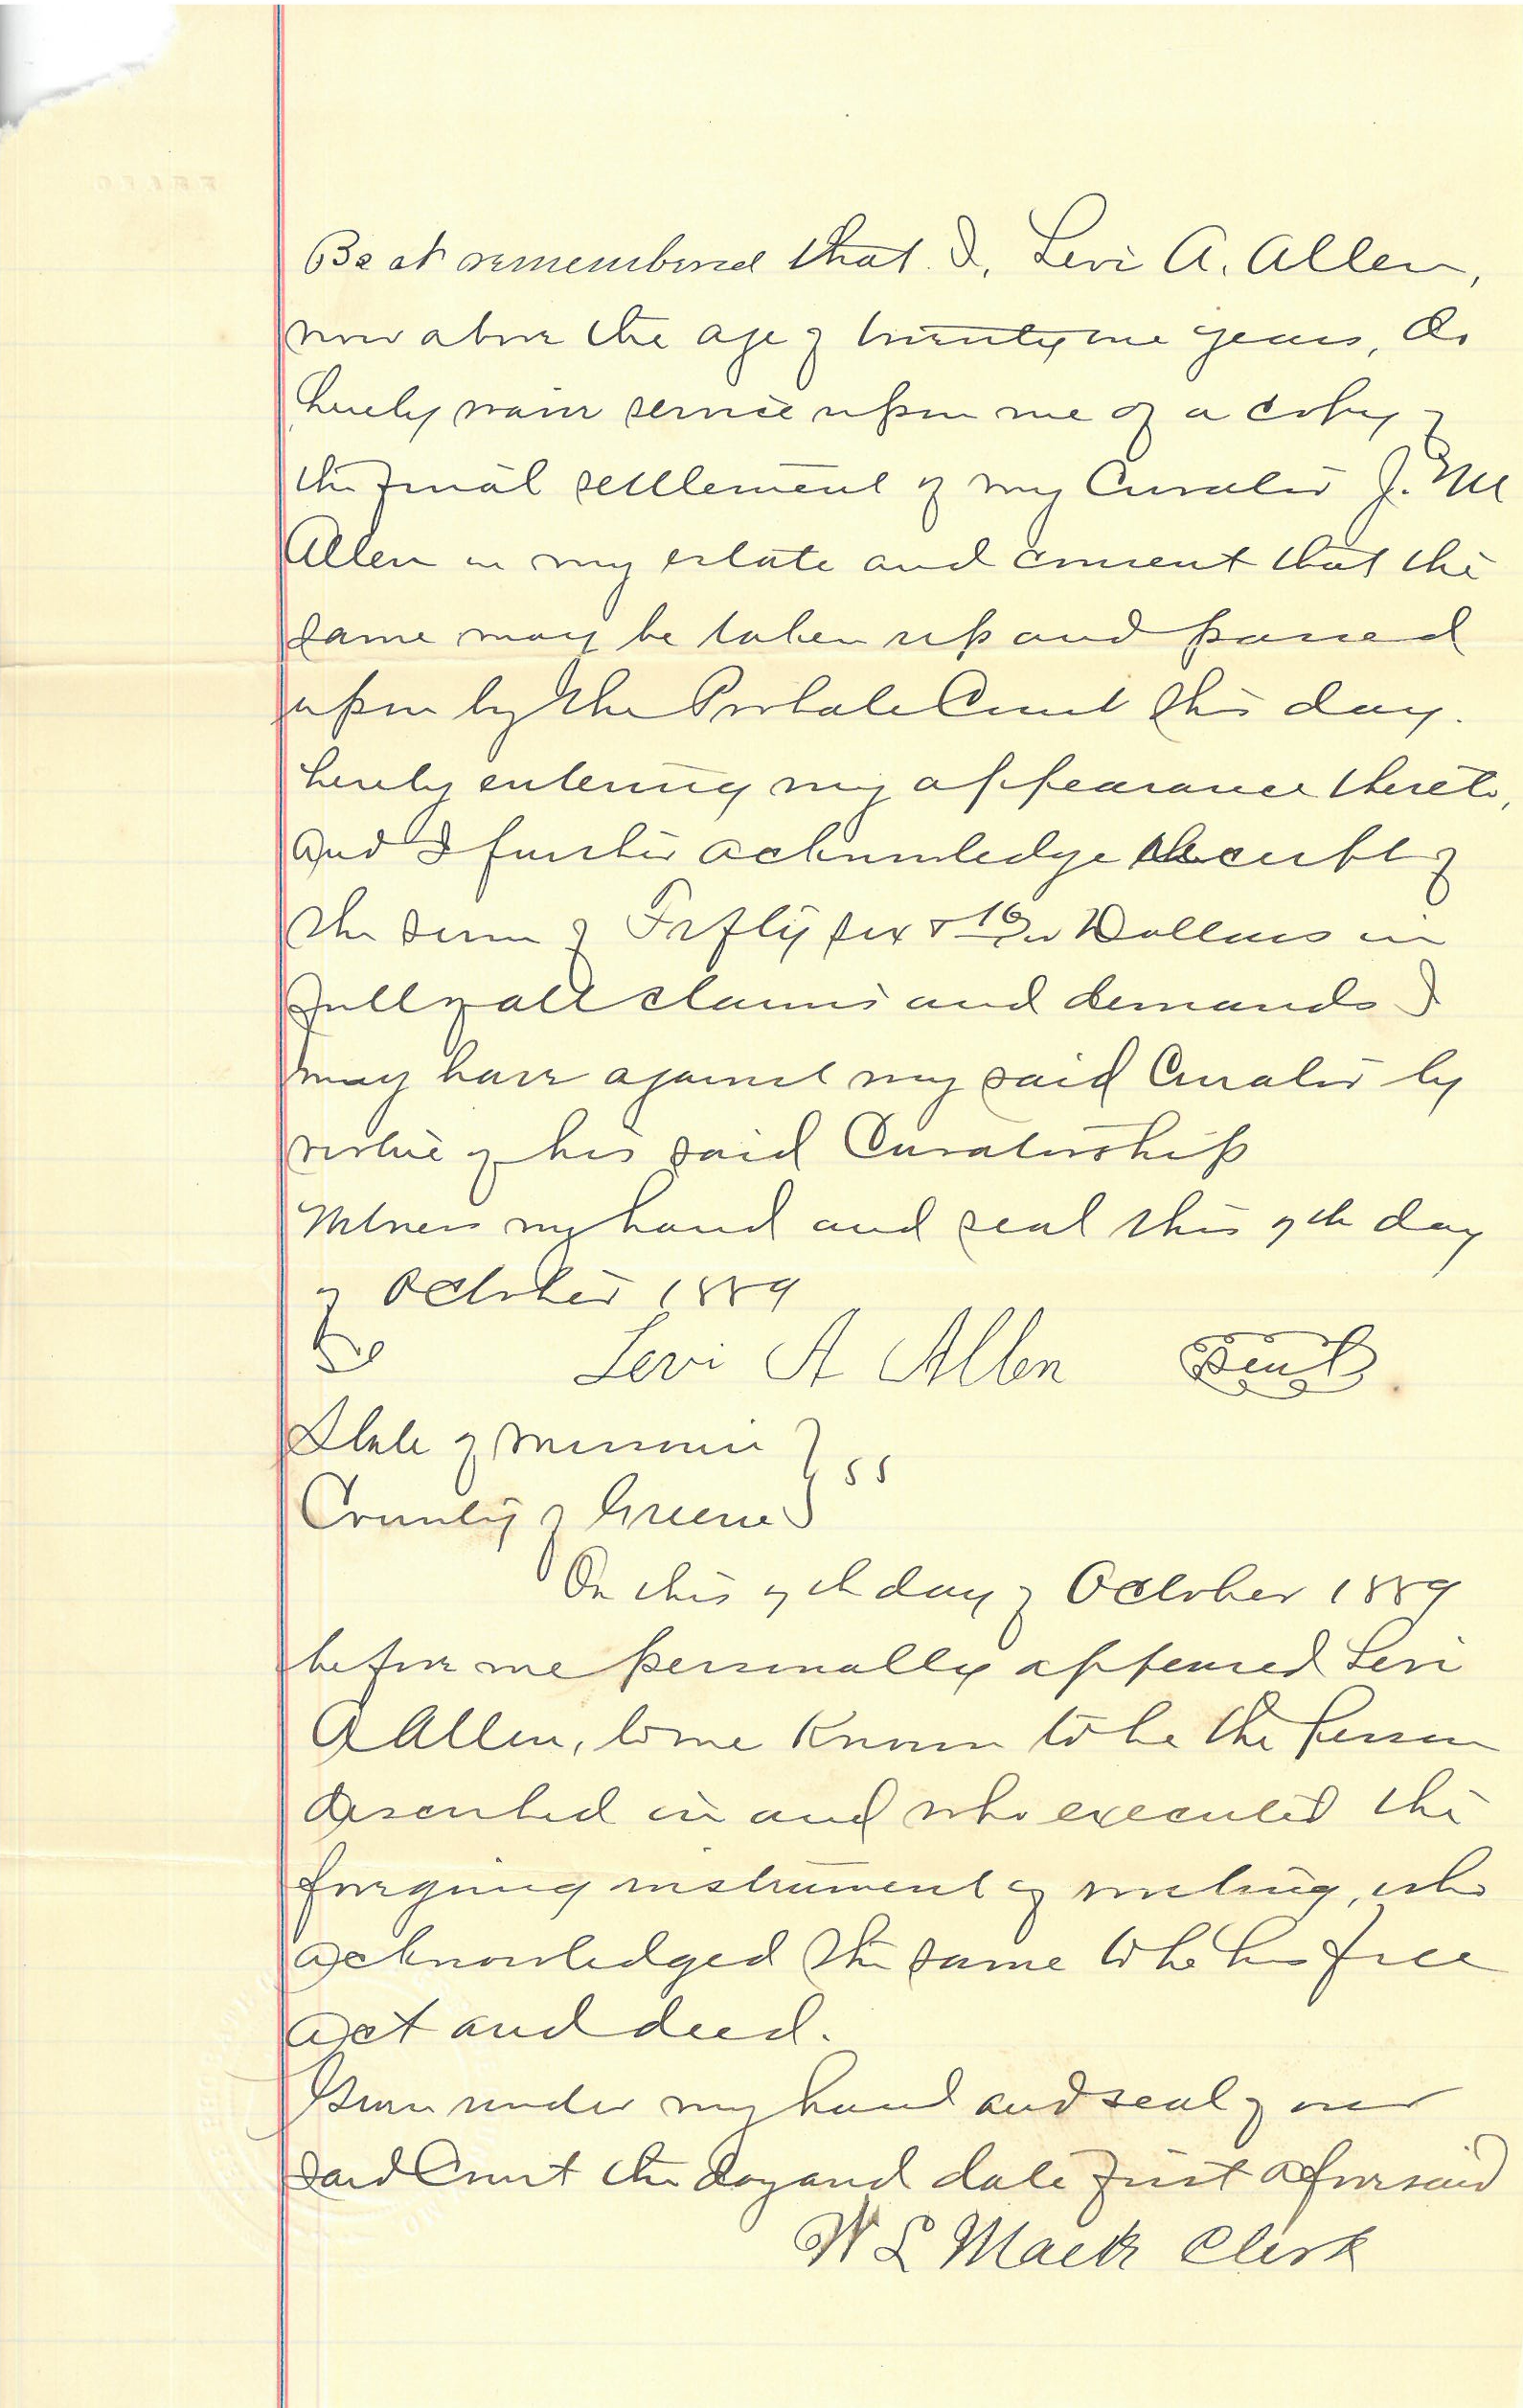 Be it remembered that I, Levi A. Allen,
now above the age of twenty one years, do
hereby waive service upon me of a copy of
the final settlement of my Curator J. M
Allen in my estate and consent that the
same may be taken up and passed
upon by the Probate Court this day.
hereby entering my appearance thereto,
and I further acknowledge receipt of
the sum of Fifty six & 16/00 Dollars in
full of all claims and demands I
may have against my said Curator by
virtue of his said Curatorship
Witness my hand and seal this 7th day
of October 1889
Levi A Allen Seal
State of Missouri } ss
County of Greene
On this 7th day of October 1889
before me personally appeared Levi
A Allen, to me known to be the person
described in and who executed the
foregoing instrument of writing, who
acknowledged the same to be his free
act and deed.
Given under my hand and seal of our
said Court the day and date first aforesaid
W L Mack Clerk